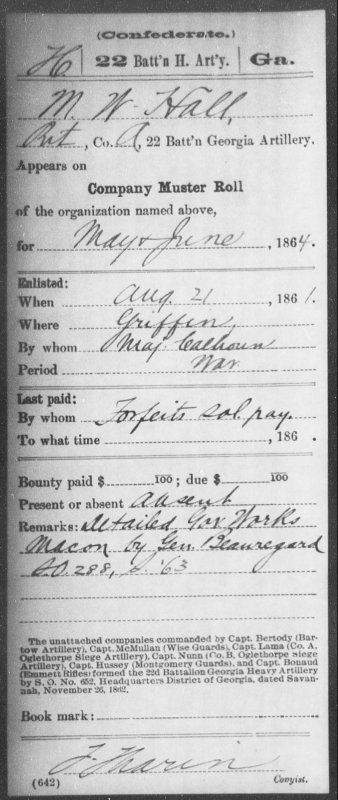 (Confederate.)
H | 22 Batt'n H. Art'y. | Ga.
M. W. Hall,
Pvt, Co. A, 22 Batt'n Georgia Artillery.
Appears on
Company Muster Roll
of the organization named above,
for May & June, 1864.
Enlisted:
When Aug. 21, 1861.
Where Griffin
By whom Maj. Calhoun
Period War
Last paid:
By whom Forfeits sol. pay.
To what time , 186 .
Bounty paid $ 100; due $ 100
Present or absent Absent
Remarks: Detailed Gov Works
Macon by Gen. Beauregard
S.O. 288, '63
The unattached companies commanded by Capt. Bertody (Bar-
tow Artillery), Capt. McMullan (Wise Guards), Capt. Lama (Co. A,
Oglethorpe Siege Artillery), Capt. Nunn (Co. B, Oglethorpe Siege
Artillery), Capt. Hussey (Montgomery Guards), and Capt. Bonaud
(Emmett Rifles) formed the 22d Battalion Georgia Heavy Artillery
by S. O. No. 652, Headquarters District of Georgia, dated Savan-
nah, November 26, 1862.
Book mark:
(642) Copyist.